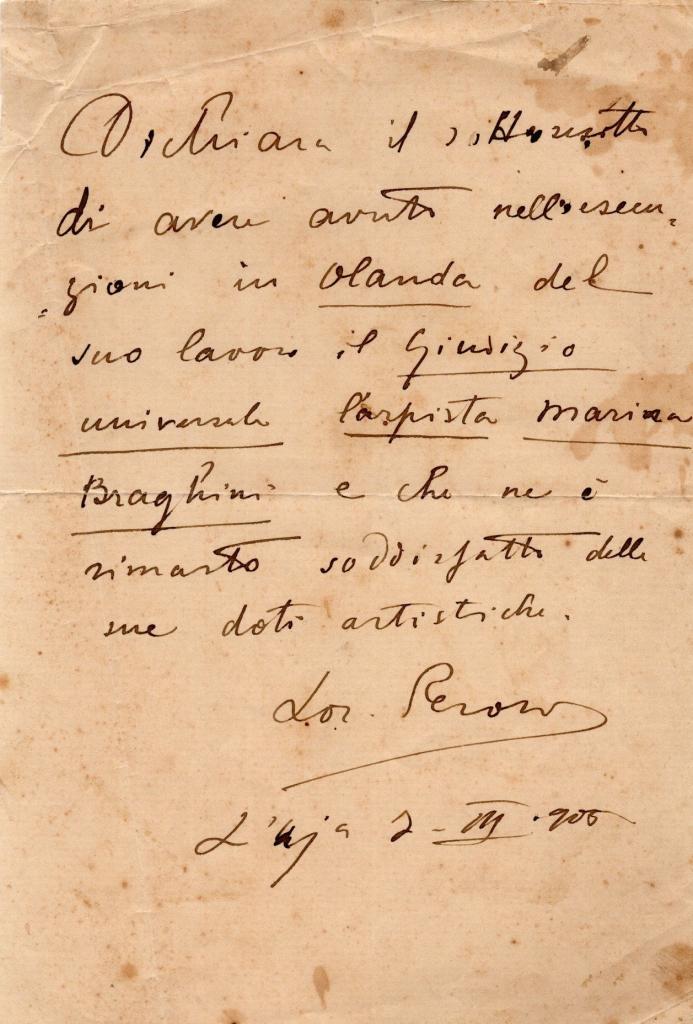 Dichiara il sottoscritto
di avere avuto nell'esecu-
=zioni in Olanda del
suo lavoro il Giudizio
universale l'arpista Marina
Braghini e che ne è
rimasto soddisfatto delle
sue doti artistiche.
Lor. Perosi
L'Aja 2-III-905